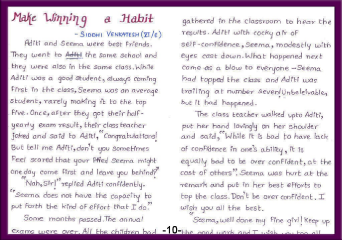 Make Winning a Habit
- SIDDHI VENKATESH (XI/C)
Aditi and Seema were best friends.
They went to the same school and
they were also in the same class. While
Aditi was a good student, always coming
first in the class, Seema was an average
student, rarely making it to the top
five. Once, after they got their half-
yearly exam result, their class teacher
joked and said to Aditi, "Congratulations!
But tell me Aditi, don't you sometimes
feel scared that your friend Seema might
one day come first and leave you behind?"
"Nah, Sir!" replied Aditi confidently.
"Seema does not have the capacity to
put forth the kind of effort that I do."
Some months passed. The annual
exams were over. All the children had
gathered in the classroom to hear the
results. Aditi with cocky air of
self-confidence, Seema, modestly with
eyes cast down. What happened next
came as a blow to everyone - Seema
had topped the class and Aditi was
trailing at number seven! Unbelievable,
but it had happened.
The class teacher walked upto Aditi,
put her hand lovingly on her shoulder
and said, "While it is bad to have lack
of confidence in one's ability, it is
equally bad to be over confident, at the
cost of others". Seema was hurt at the
remark and put in her best efforts to
top the class. Don't be over confident. I
wish you all the best.
"Seema, well done my fine girl! Keep up
the good work and I wish you too all
-10-